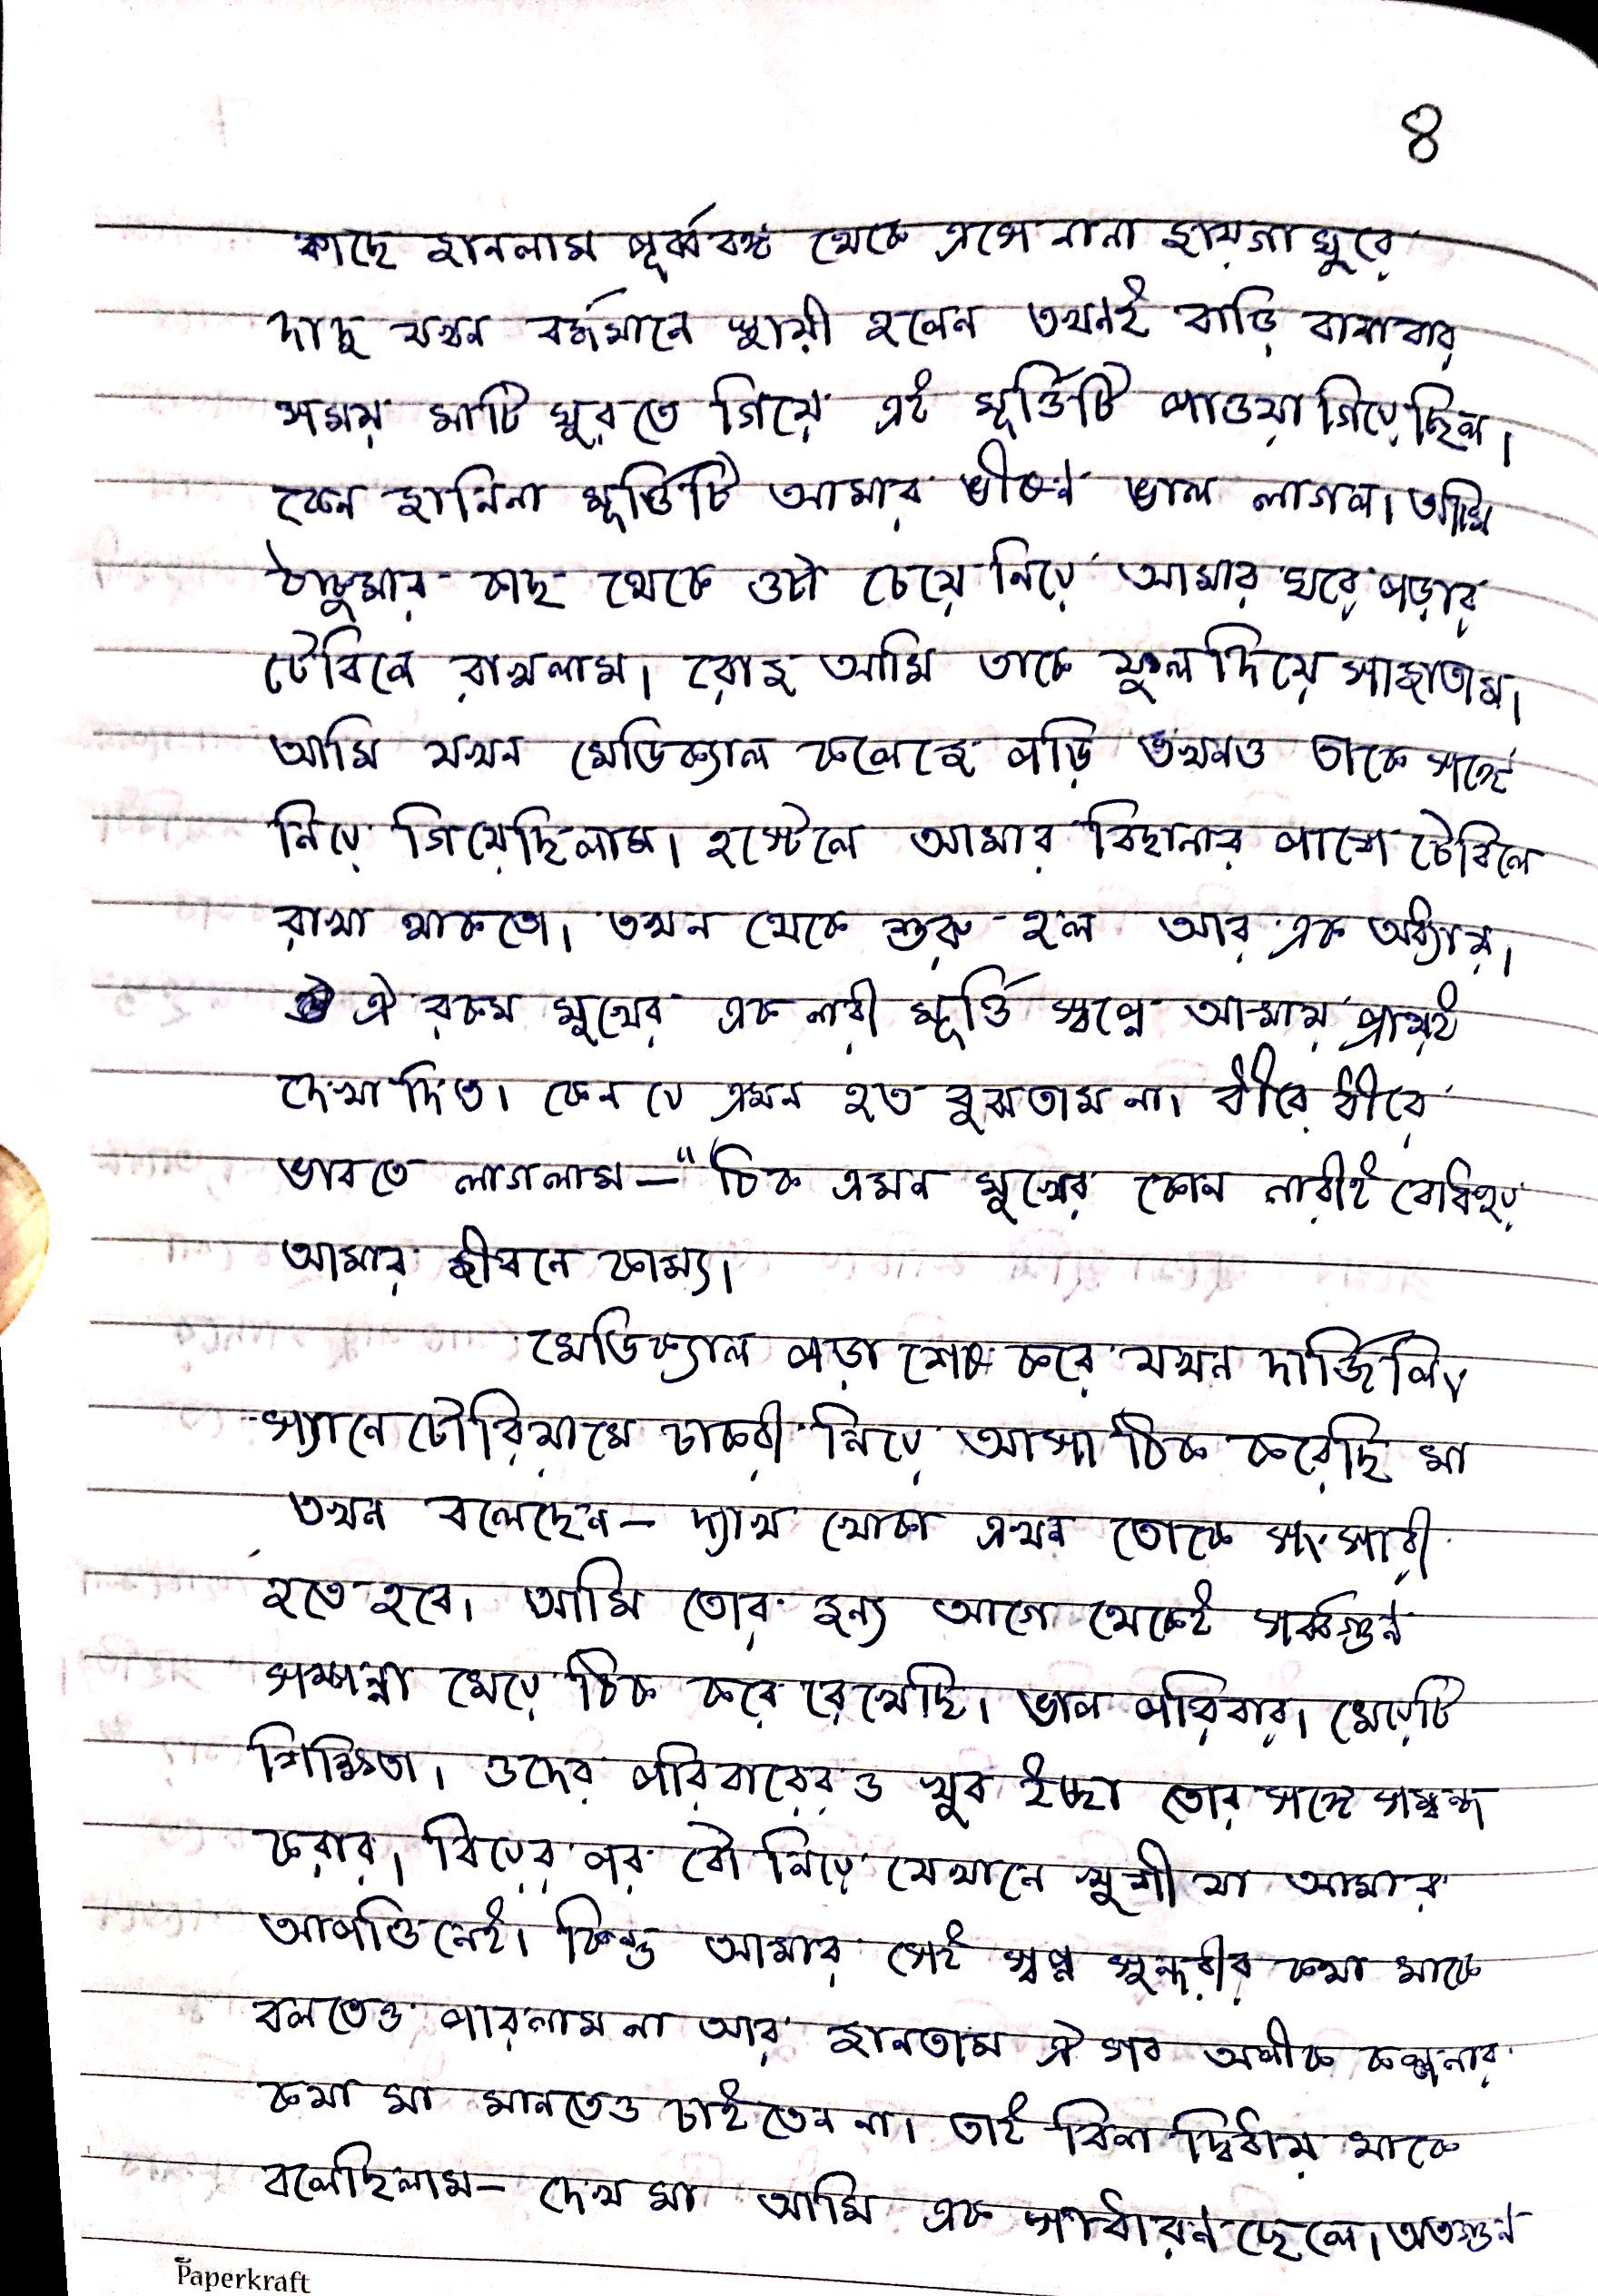 ৪
কাছে জানলাম পূর্ব্ববঙ্গ থেকে এসে নানা জায়গা ঘুরে
দাদু যখন বর্দ্ধমানে স্থায়ী হলেন তখনই বাড়ি বানাবার
সময় মাটি খুরতে গিয়ে এই মূর্ত্তিটি পাওয়া গিয়েছিল।
কেন জানিনা মূর্ত্তিটি আমার ভীষণ ভাল লাগল। আমি
ঠাকুমার কাছ থেকে ওটা চেয়ে নিয়ে আমার ঘরে পড়ার
টেবিলে রাখলাম। রোজ আমি তাকে ফুল দিয়ে সাজাতাম।
আমি যখন মেডিক্যাল কলেজে পড়ি তখনও তাকে সঙ্গে
নিয়ে গিয়েছিলাম। হস্টেলে আমার বিছানার পাশে টেবিলে
রাখা থাকতো। তখন থেকে শুরু হল আর এক অধ্যায়।
ঐ রকম মুখের এক নারী মূর্ত্তি স্বপ্নে আমায় প্রায়ই
দেখা দিত। কেন যে এমন হত বুঝতাম না। ধীরে ধীরে
ভাবতে লাগলাম — "ঠিক এমন মুখের কোন নারীই বোধহয়
আমার জীবনে কাম্য।
মেডিক্যাল পড়া শেষ করে যখন দার্জিলিং
স্যানেটোরিয়ামে চাকরী নিয়ে আসা ঠিক করেছি মা
তখন বলেছেন – দ্যাখ খোকা এখন তোকে সংসারী
হতে হবে। আমি তোর জন্য আগে থেকেই সর্ব্বগুন
সম্পন্না মেয়ে ঠিক করে রেখেছি। ভাল পরিবার। মেয়েটি
শিক্ষিতা। ওদের পরিবারেরও খুব ইচ্ছা তোর সঙ্গে সম্বন্ধ
করার। বিয়ের পর বৌ নিয়ে যেখানে খুশী যা আমার
আপত্তি নেই। কিন্তু আমার সেই স্বপ্ন সুন্দরীর কথা মাকে
বলতেও পারলাম না আর জানতাম ঐ সব অলীক কল্পনার
কথা মা মানতেও চাইতেন না। তাই বিনা দ্বিধায় মাকে
বলেছিলাম – দেখ মা আমি এক সাধারন ছেলে। অতগুন
Paperkraft